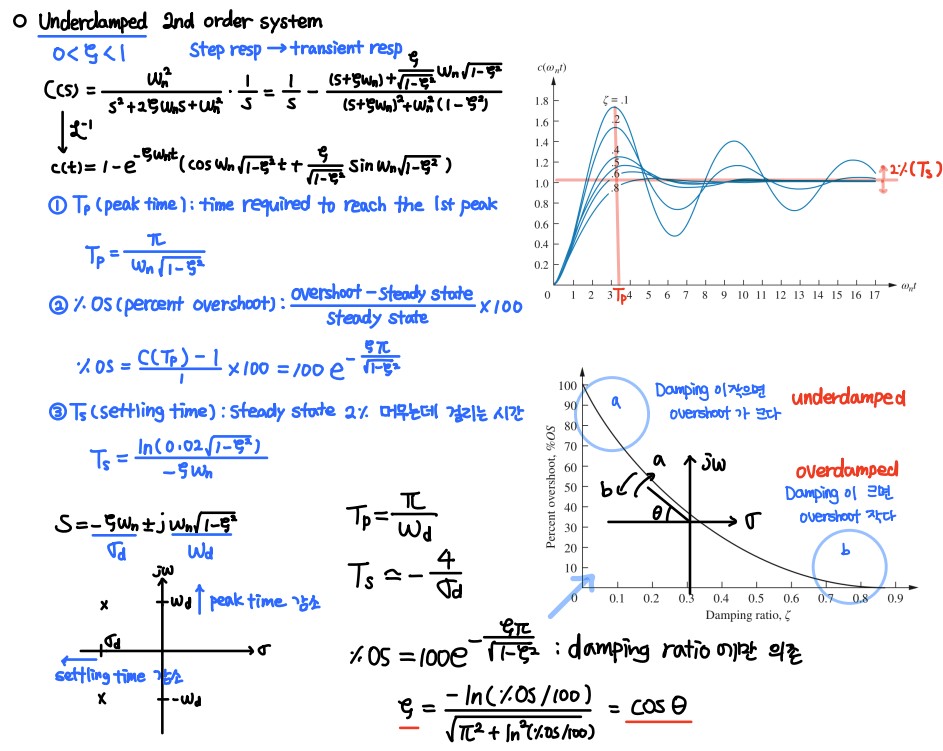 ○ Underdamped 2nd order system
0<ζ<1 Step resp → transient resp
C(s) = ωn²/(s²+2ζωns+ωn²) · 1/s = 1/s − ((s+ζωn)+ζ/√(1-ζ²) ωn√(1-ζ²))/((s+ζωn)²+ωn²(1-ζ²))
↓ ℒ⁻¹
c(t) = 1-e^(-ζωnt)(cos ωn√(1-ζ²)t + ζ/√(1-ζ²) sin ωn√(1-ζ²))
① Tp (peak time) : time required to reach the 1st peak
Tp = π/(ωn√(1-ζ²))
② % OS (percent overshoot) : (overshoot - steady state)/(steady state) × 100
% OS = (C(Tp) - 1)/1 × 100 = 100 e^(-ζπ/√(1-ζ²))
③ Ts (settling time) : steady state 2% 머무는데 걸리는 시간
Ts = ln(0.02√(1-ζ²))/(-ζωn)
S = -ζωn ± jωn√(1-ζ²)
σd ωd
jω
x ωd ↑ peak time 감소
σd σ
settling time 감소
x -ωd
Tp = π/ωd
Ts ≃ - 4/σd
% OS = 100e^(-ζπ/√(1-ζ²)) : damping ratio 에만 의존
ζ = -ln(%OS/100)/√(π²+ln²(%OS/100)) = cosθ
c(ωnt)
1.8
1.6
1.4
1.2
1.0
0.8
0.6
0.4
0.2
ζ = .1
.2
.4
.5
.6
.8
2% (Ts)
0 1 2 3 4 5 6 7 8 9 10 11 12 13 14 15 16 17 ωnt
Tp
Percent overshoot, %OS
100
90
80
70
60
50
40
30
20
10
0 0.1 0.2 0.3 0.4 0.5 0.6 0.7 0.8 0.9
Damping ratio, ζ
a
Damping 이 작으면
overshoot 가 크다
underdamped
overdamped
Damping 이 크면
overshoot 작다
b
a
b
jω
θ
σ